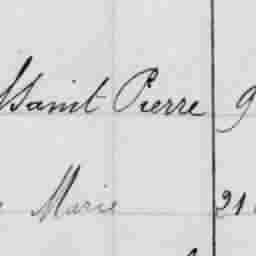 ssaint Pierre 9
Marie 21